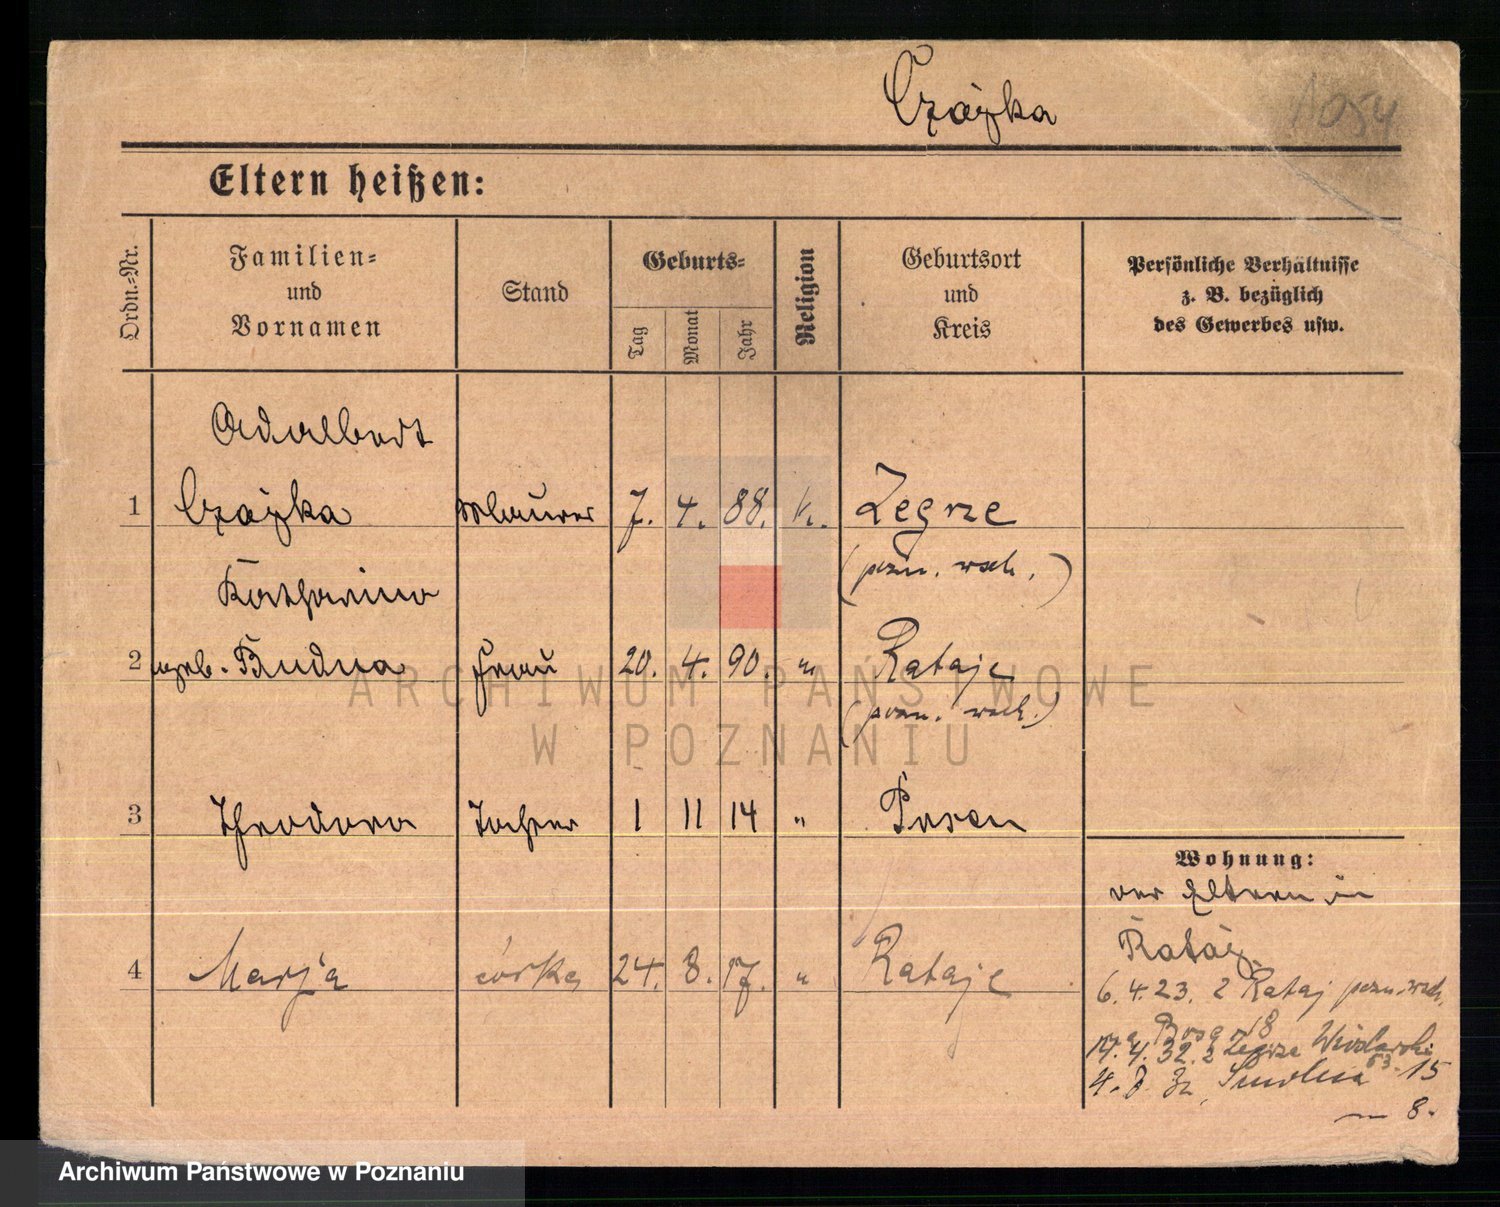 Czajka
1054
Eltern heißen:
Ordn.-Nr.
Familien-
und
Vornamen
Stand
Geburts-
Tag
Monat
Jahr
Religion
Geburtsort
und
Kreis
Persönliche Verhältnisse
z. B. bezüglich
des Gewerbes usw.
Adalbert
1 Czajka Maurer 7. 4. 88. k. Zegrze
(pozn. wsch.)
Katharina
2 geb. Budna Frau 20. 4. 90. " Rataje
(pozn. wsch.)
3 Theodora Tochter 1 11 14 " Posen
Wohnung:
der Eltern in
Rataj.
4 Marja córka 24. 8. 17. " Rataje
6. 4. 23. z Rataj pozn. wsch.
18
4. 32. z Zegrze
53.
4. 8. 32 15
8.
ARCHIWUM PAŃSTWOWE
W POZNANIU
Archiwum Państwowe w Poznaniu